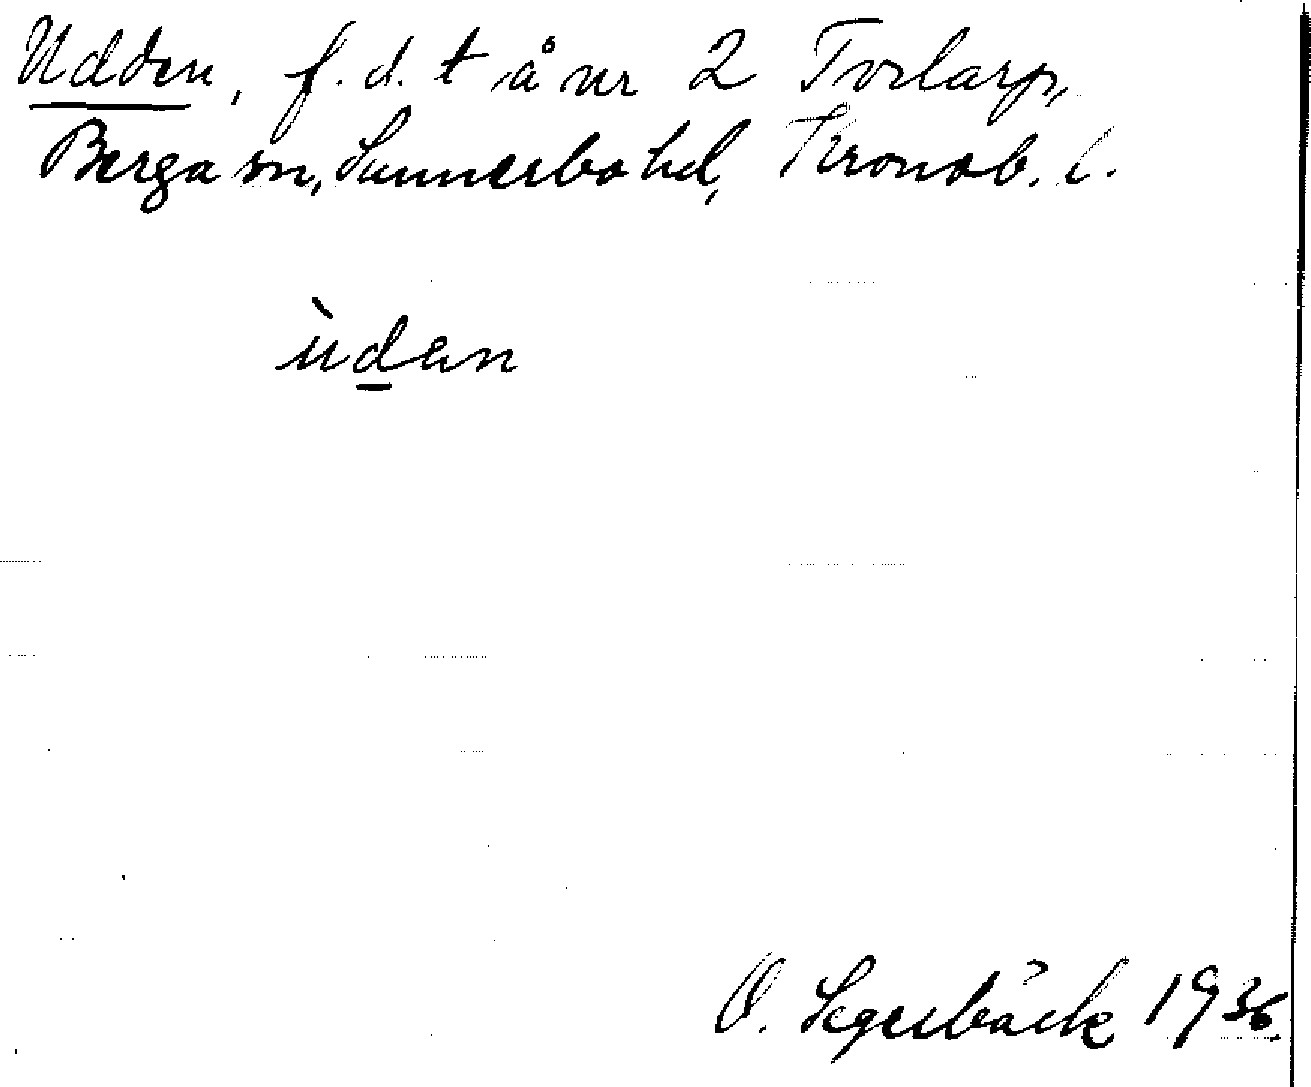 Udden, f.d. t å nr 2 Torlarp,
Berga sn, Sunnerbo hd, Kronob. l.
ùdan
O. Segerbäck 1936.